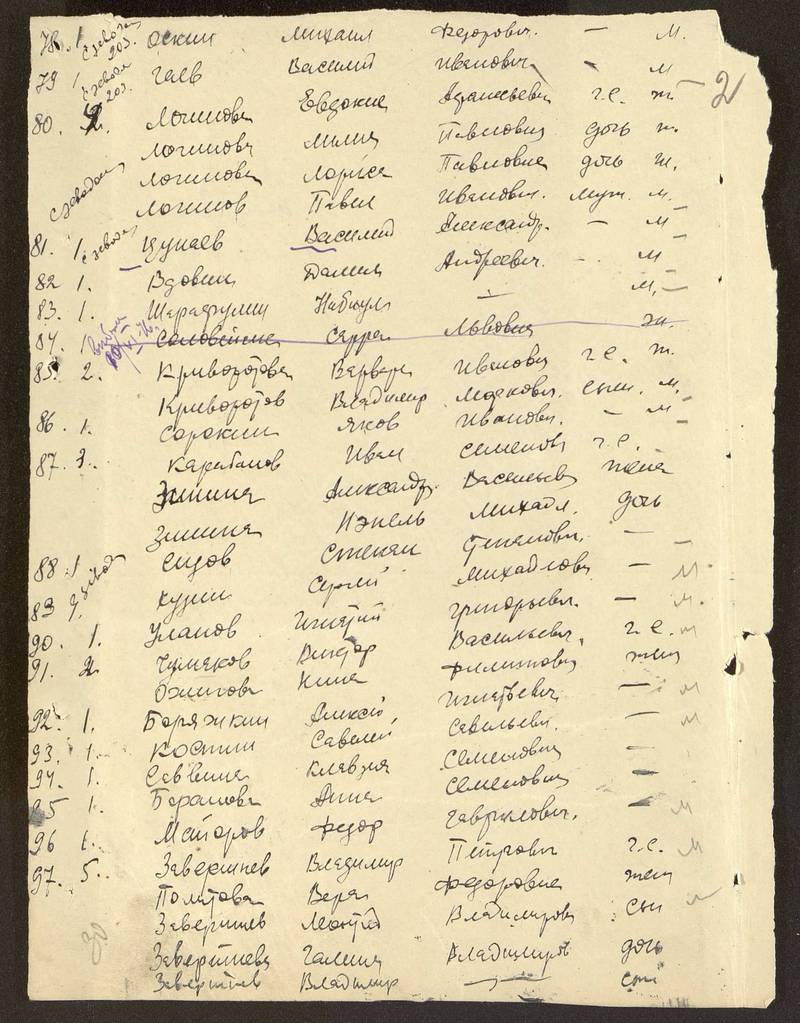 78. 1. Оскин Михаил Федорович. — м.
79 1 с завода 203. Гаев Василий Иванович — м
80. 4. с завода 203. Логинова Евдокия г.с. ж. 2
Логинова Лилия Павловна дочь ж.
Логинова Лориса Павловна дочь ж.
с завода Логинов Павел Иванович. муж. м.
81. 1. с завода Цунаев Василий Александр. — м
82 1. Вдовин Данил Андреевич. — м
83. 1. Шарафулин — м.
84. 1 Сарра Львовна ж.
85. 2. Криворотова Варвара Ивановна г.с. ж.
Криворотов Владимир сын. м.
86. 1. Сорокин Яков Иванович. — м
87. 3. Карабанов Иван Семенов г.с.
Зимина Александр. Васильевна жена
Зимина Нэнель Михайл. дочь
88 1 с завода Сидов Степан Степанович. —
89 Кузин Сергей Михайлович — м
90. 1. Уланов Игнатий Григорьевич. — м.
91. 2. Чумаков Виктор Васильевич. г.с. м
Ожигова Нина Филиповна жена
92. 1. Баряжкин Алексей Игнатьевич — м
93. 1. Костин Савелий Савельевич. — м
94. 1. Савина Клавдия Семеновна —
95 1. Баранова Анна Семеновна —
96 1. Майоров Федор Гаврилович. — м
97. 5. Завершнев Владимир Петрович г.с. м
Политова Вера Федоровна жена
Завершнев Леонтий Владимирович сын
30 Завершнева Галина Владимиров дочь
Завершнев Владимир — сын